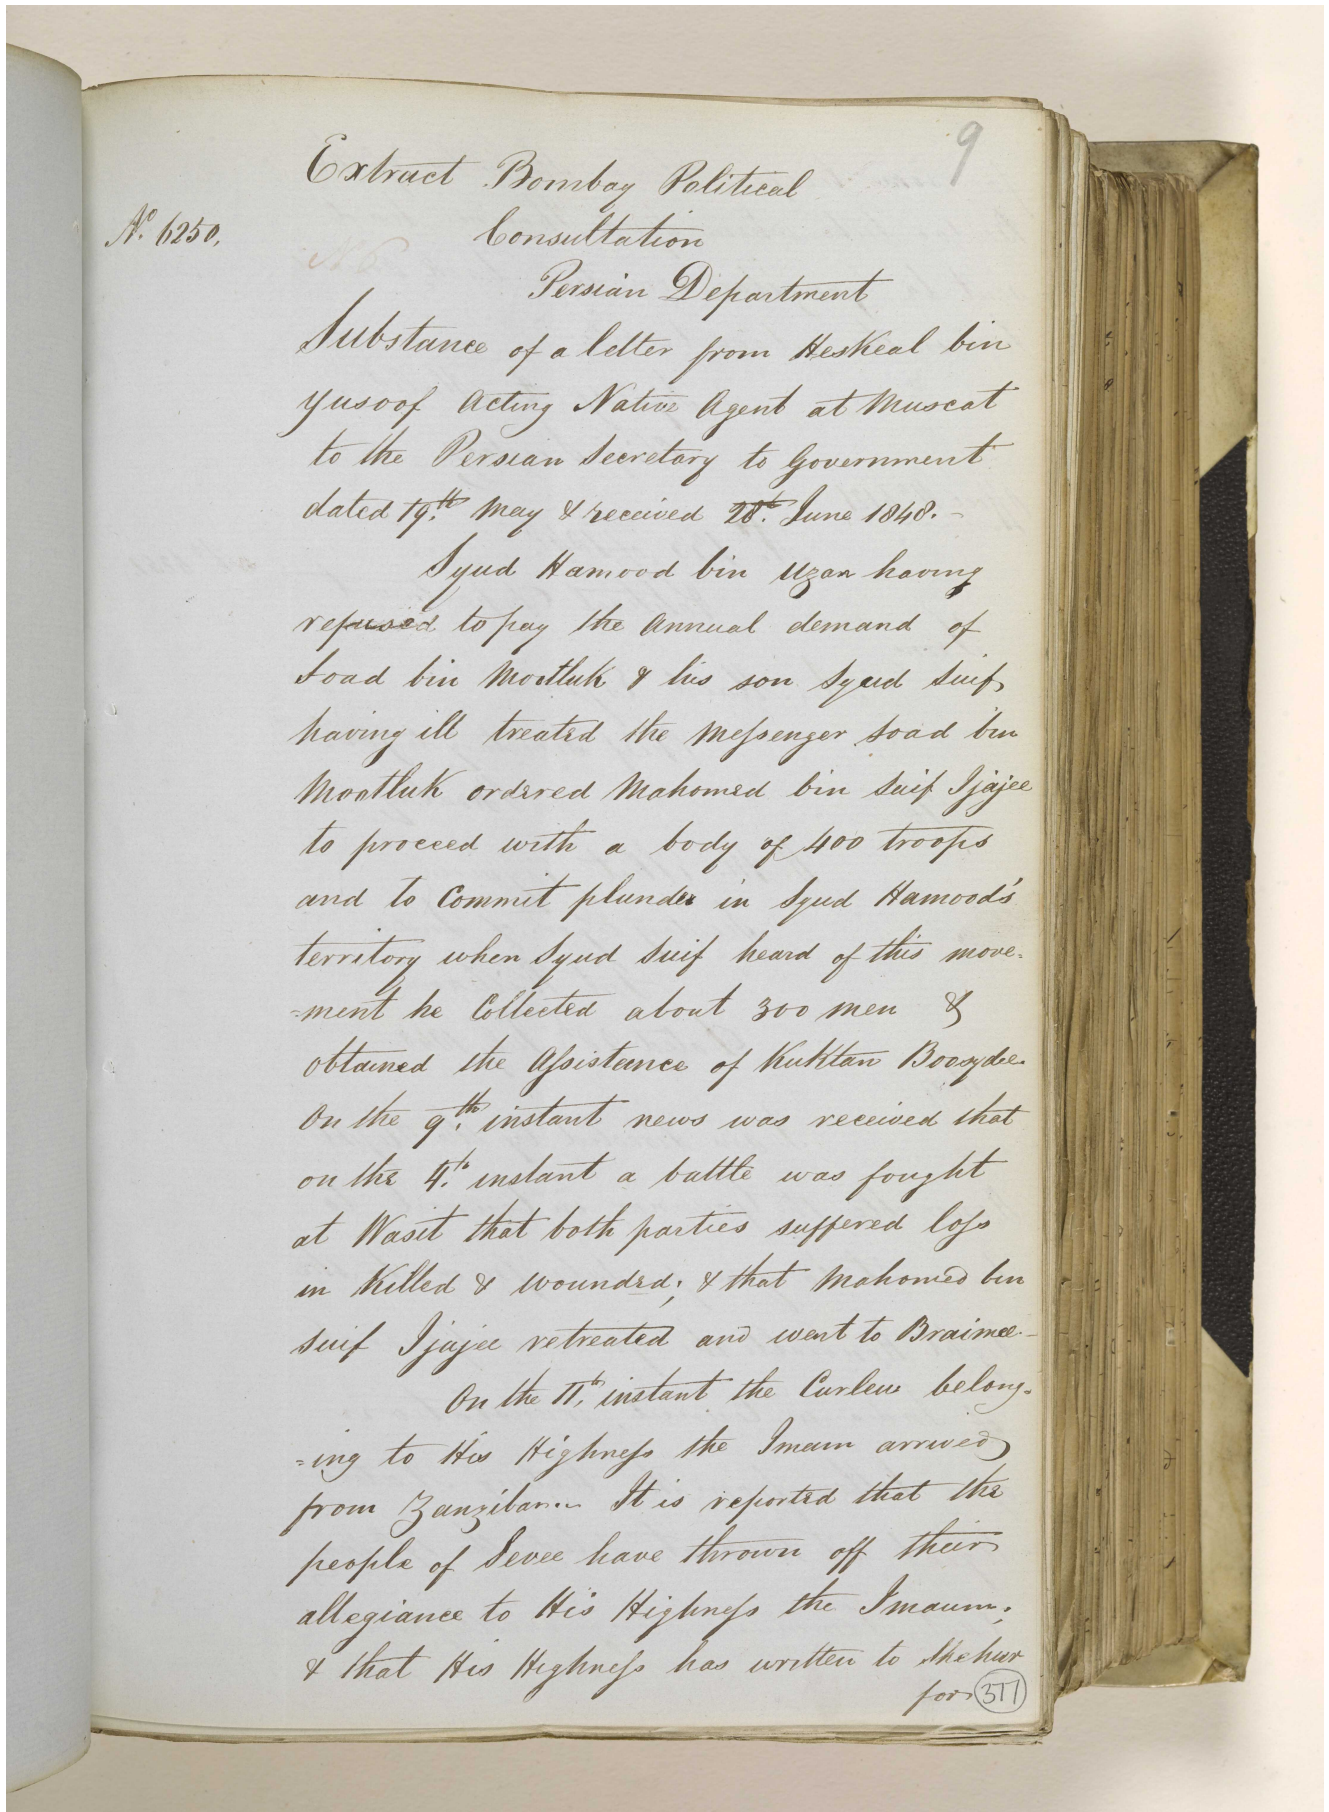 9
Extract Bombay Political
No. 6250.
Consultation
Persian Department
Substance of a letter from Heskeal bin
Yusoof Acting Native Agent at Muscat
to the Persian Secretary to Government
dated 19th. May & received 28th. June 1848.-
Syud Hamood bin Uzan having
refused to pay the annual demand of
Soad bin Mootluk & his son Syud Suif
having ill treated the Messenger Soad bin
Mootluk ordered Mahomed bin Suif Ijajee
to proceed with a body of 400 troops
and to Commit plunder in Syud Hamood's
territory when Syud Suif heard of this move-
=ment he Collected about 300 men &
obtained the Assistance of Kuktan Boosydee.
On the 9th. instant news was received that
on the 4th. instant a battle was fought
at Wasit that both parties suffered loss
in Killed & wounded; & that Mahomed bin
Suif Ijajee retreated and went to Braimee-
On the 11th. instant the Curlew belong-
=ing to His Highness the Imam arrived
from Zanzibar... It is reported that the
people of Sevee have thrown off their
allegiance to His Highness the Imaum;
& that His Highness has written to Shehur
for
377